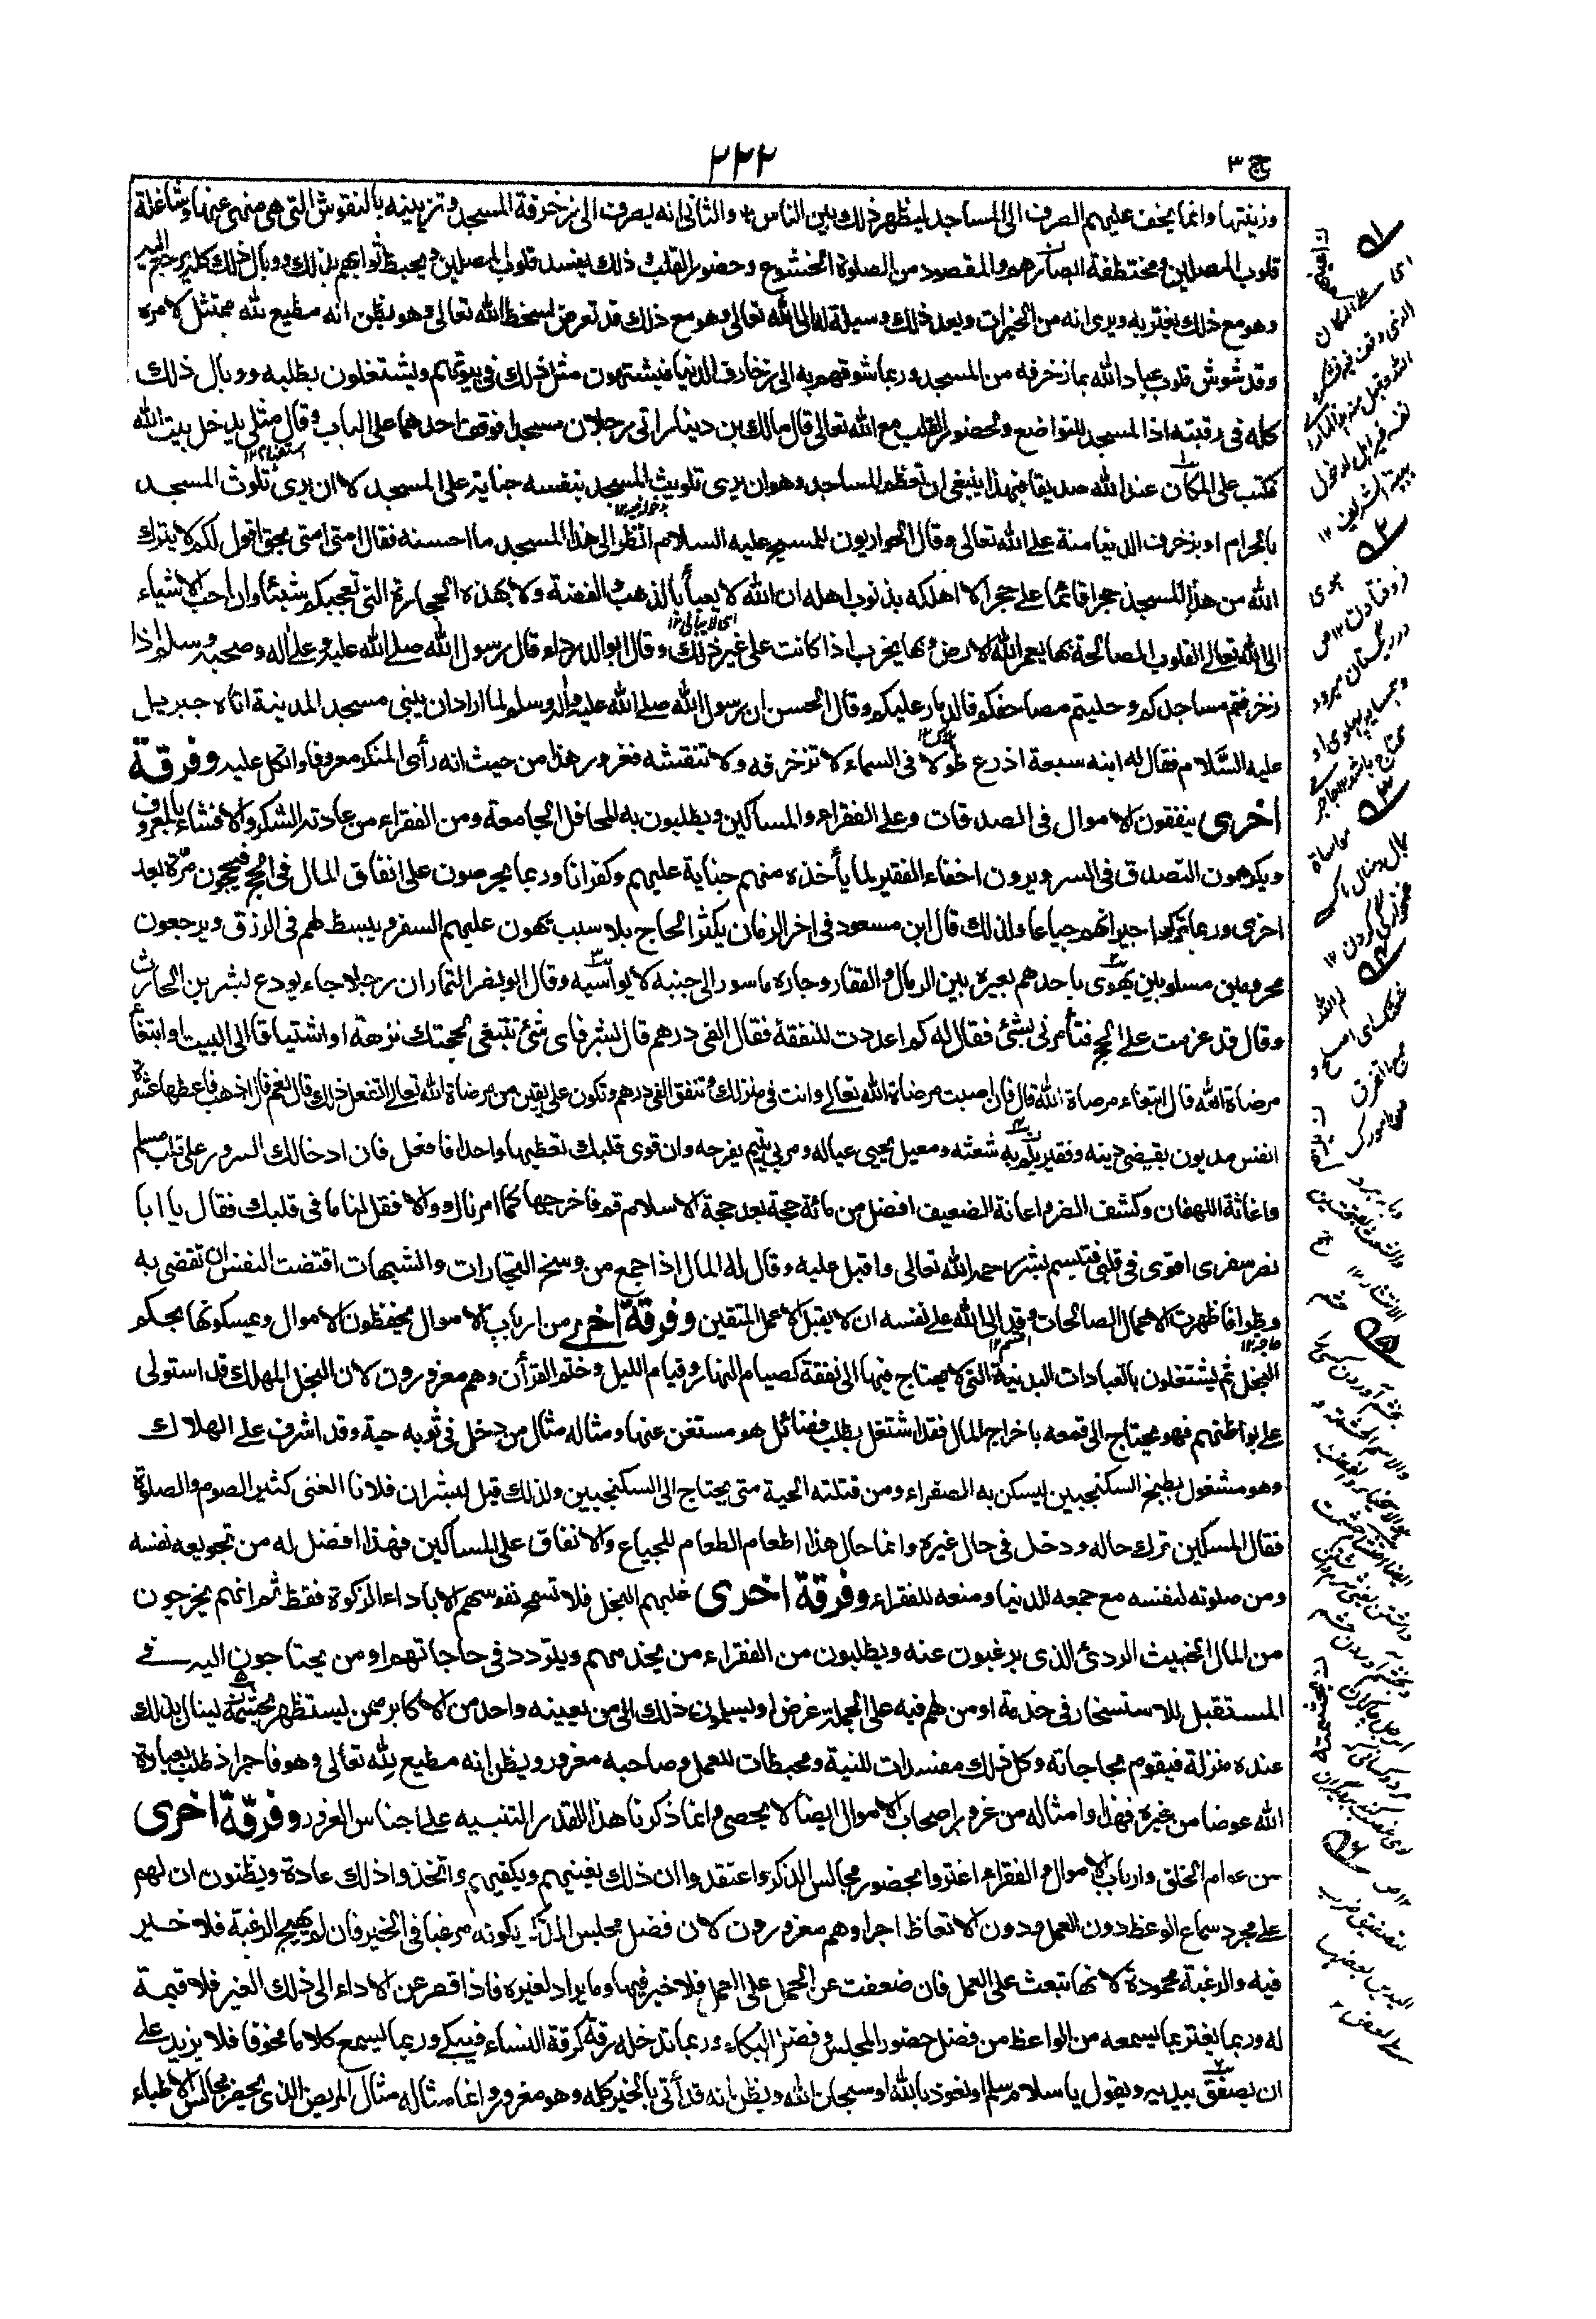 ج ٣
٢٢٢
وزينتها وانما يخف عليهم الصرف الى المساجد ليظهر ذلك بين الناس والثانى انه يصرف الى زخرفة المسجد وتزيينه بالنقوش التى هى منهى عنها وشاغلة
قلوب المصلين ومختطفة ابصارهم والمقصود من الصلوة الخشوع وحضور القلب وذلك يفسد قلوب المصلين ويحبط ثوابهم بذلك ووبال ذلك كله يرجع اليه
وهو مع ذلك يغتر به ويرى انه من الخيرات ويعد ذلك وسيلة له الى الله تعالى وهو مع ذلك قد تعرض لسخط الله تعالى وهو يظن انه مطيع لله ممتثل لامره
وقد شوش قلوب عباد الله بما زخرفه من المسجد وربما شوقهم به الى زخارف الدنيا فيشتهون مثل ذلك فى بيوتهم ويشتغلون بطلبه ووبال ذلك
كله فى رقبته اذ المسجد للتواضع ولحضور القلب مع الله تعالى قال مالك بن دينار اتى رجلان مسجدا فوقف احدهما على الباب وقال مثلى يدخل بيت الله
فكتب على المكان عند الله صديقا فهذا ينبغى ان تعظم المساجد وهو ان يرى تلويث المسجد بنفسه جناية على المسجد لا ان يرى تلوث المسجد
بالحرام او بزخرف الدنيا منة على الله تعالى وقال الحواريون للمسيح عليه السلام انظر الى هذا المسجد ما احسنه فقال امتى امتى بحق اقول لكم لا يترك
الله من هذا المسجد حجرا قائما على حجر الا اهلكه بذنوب اهله ان الله لا يعبأ بالذهب والفضة ولا بهذه الحجارة التى تعجبكم شيئا وان احب الاشياء
الى الله تعالى القلوب الصالحة بها يعمر الله الارض وبها يخرب اذا كانت على غير ذلك وقال ابو الدرداء قال رسول الله صلى الله عليه وعلى اله وصحبه وسلم اذا
زخرفتم مساجدكم وحليتم مصاحفكم فالدبار عليكم وقال الحسن ان رسول الله صلى الله عليه واله وسلم لما اراد ان يبنى مسجد المدينة اتاه جبريل
عليه السَّلام فقال له ابنه سبعة اذرع طولا فى السماء لا تزخرفه ولا تنقشه فغرور هذا من حيث انه رأى المنكر معروفا واتكل عليه وفرقة
اخرى ينفقون الاموال فى الصدقات وعلى الفقراء والمساكين ويطلبون به المحافل الجامعة ومن الفقراء من عادته الشكر والافشاء بالمعروف
ويكرهون التصدق فى السر ويرون اخفاء الفقير لما يأخذه منهم جناية عليهم وكفرانا وربما يحرصون على انفاق المال فى الحج فيحجون مرّة بعد
اخرى وربما تركوا جيرانهم جياعا ولذلك قال ابن مسعود فى اخر الزمان يكثر الحاج بلا سبب تهون عليهم السفر ويبسط لهم فى الرزق ويرجعون
محرومين مسلوبين يهوى باحدهم بعيره بين الرمال والقفار وجاره ماسور الى جنبه لا يواسيه وقال ابو نصر التمار ان رجلا جاء يودع بشر بن الحارث
وقال قد عزمت على الحج فتأمرنى بشئ فقال له كم اعددت للنفقة فقال الفى درهم قال بشر فاى شئ تبتغى بحجتك نزهة او اشتياقا الى البيت او ابتغاء
مرضاة الله قال ابتغاء مرضاة الله قال فان اصبت مرضاة الله تعالى وانت فى منزلك وتنفق الفى درهم وتكون على يقين من مرضاة الله تعالى اتفعل ذلك قال نعم قال اذهب فاعطها عشرة
انفس مديون يقضى دينه وفقير يلم به شعثه ومعيل يحيى عياله ومربى يتيم يفرحه وان قوى قلبك تعطيها واحدا فافعل فان ادخالك السرور على قلب مسلم
واغاثة اللهفان وكشف الضر واعانة الضعيف افضل من مائة حجة بعد حجة الاسلام قم فاخرجها كما امرناك والا فقل لنا ما فى قلبك فقال يا ابا
نصر سفرى اقوى فى قلبى فتبسم بشر رحمه الله تعالى واقبل عليه وقال له المال اذا جمع من وسخ التجارات والشبهات اقتضت النفس ان تقضى به
وطرا فاظهرت الاعمال الصالحات وقد الى الله على نفسه ان لا يقبل الا عمل المتقين وفرقة اخرى من ارباب الاموال يحفظون الاموال ويمسكونها بحكم
البخل ثم يشتغلون بالعبادات البدنية التى لا يحتاج فيها الى نفقة كصيام النهار وقيام الليل وختم القرأن وهم مغرورون لان البخل المهلك قد استولى
على بواطنهم فهو يحتاج الى قمعه باخراج المال فقد اشتغل بطلب فضائل هو مستغن عنها ومثاله مثال من دخل فى ثوبه حية وقد اشرف على الهلاك
وهو مشغول بطبخ السكنجبين ليسكن به الصفراء ومن قتلته الحية متى يحتاج الى السكنجبين ولذلك قيل لبشر ان فلانا الغنى كثير الصوم والصلوة
فقال المسكين ترك حاله ودخل فى حال غيره وانما حال هذا اطعام الطعام للجياع والانفاق على المساكين فهذا افضل له من تجويعه نفسه
ومن صلوته لنفسه مع جمعه للدنيا ومنعه للفقراء وفرقة اخرى غلبهم البخل فلا تسمح نفوسهم الا باداء الزكوة فقط ثم انهم يخرجون
من المال الخبيث الردئ الذى يرغبون عنه ويطلبون من الفقراء من يخدمهم ويتردد فى حاجاتهم او من يحتاجون اليه فى
المستقبل للاستسخار فى خدمة او من لهم فيه على الجملة غرض او يسلمون ذلك الى من يعينه واحد من الاكابر ممن يستظهر بحشمته لينال بذلك
عنده منزلة فيقوم بحاجاته وكل ذلك مفسدات للنية ومحبطات للعمل وصاحبه مغرور ويظن انه مطيع لله تعالى وهو فاجر اذ طلب بعبادة
الله عوضا من غيره فهذا وامثاله من غرور اصحاب الاموال ايضا لا يحصى وانما ذكرنا هذا القدر للتنبيه على اجناس الغرور وفرقة اخرى
من عوام الخلق وارباب الاموال والفقراء اغتروا بحضور مجالس الذكر واعتقدوا ان ذلك يغنيهم ويكفيهم واتخذوا ذلك عادة ويظنون ان لهم
على مجرد سماع الوعظ دون العمل ودون الاتعاظ اجرا وهم مغرورون لان فضل مجلس الذكر لكونه مرغبا فى الخير فان لم يهيج الرغبة فلا خير
فيه والرغبة محمودة لانها تبعث على العمل فان ضعفت عن الحمل على العمل فلا خير فيها وما يراد لغيره فاذا قصر عن الاداء الى ذلك الغير فلا قيمة
له وربما يغتر بما يسمعه من الواعظ من فضل حضور المجلس وفضل البكاء وربما تدخله رقة كرقة النساء فيبكى وربما يسمع كلاما مخوفا فلا يزيد على
ان يصفق بيديه ويقول يا سلام سلم او نعوذ بالله او سبحان الله ويظن انه قد أتى بالخير كله وهو مغرور وانما مثاله مثال المريض الذى يحضر مجالس الاطباء